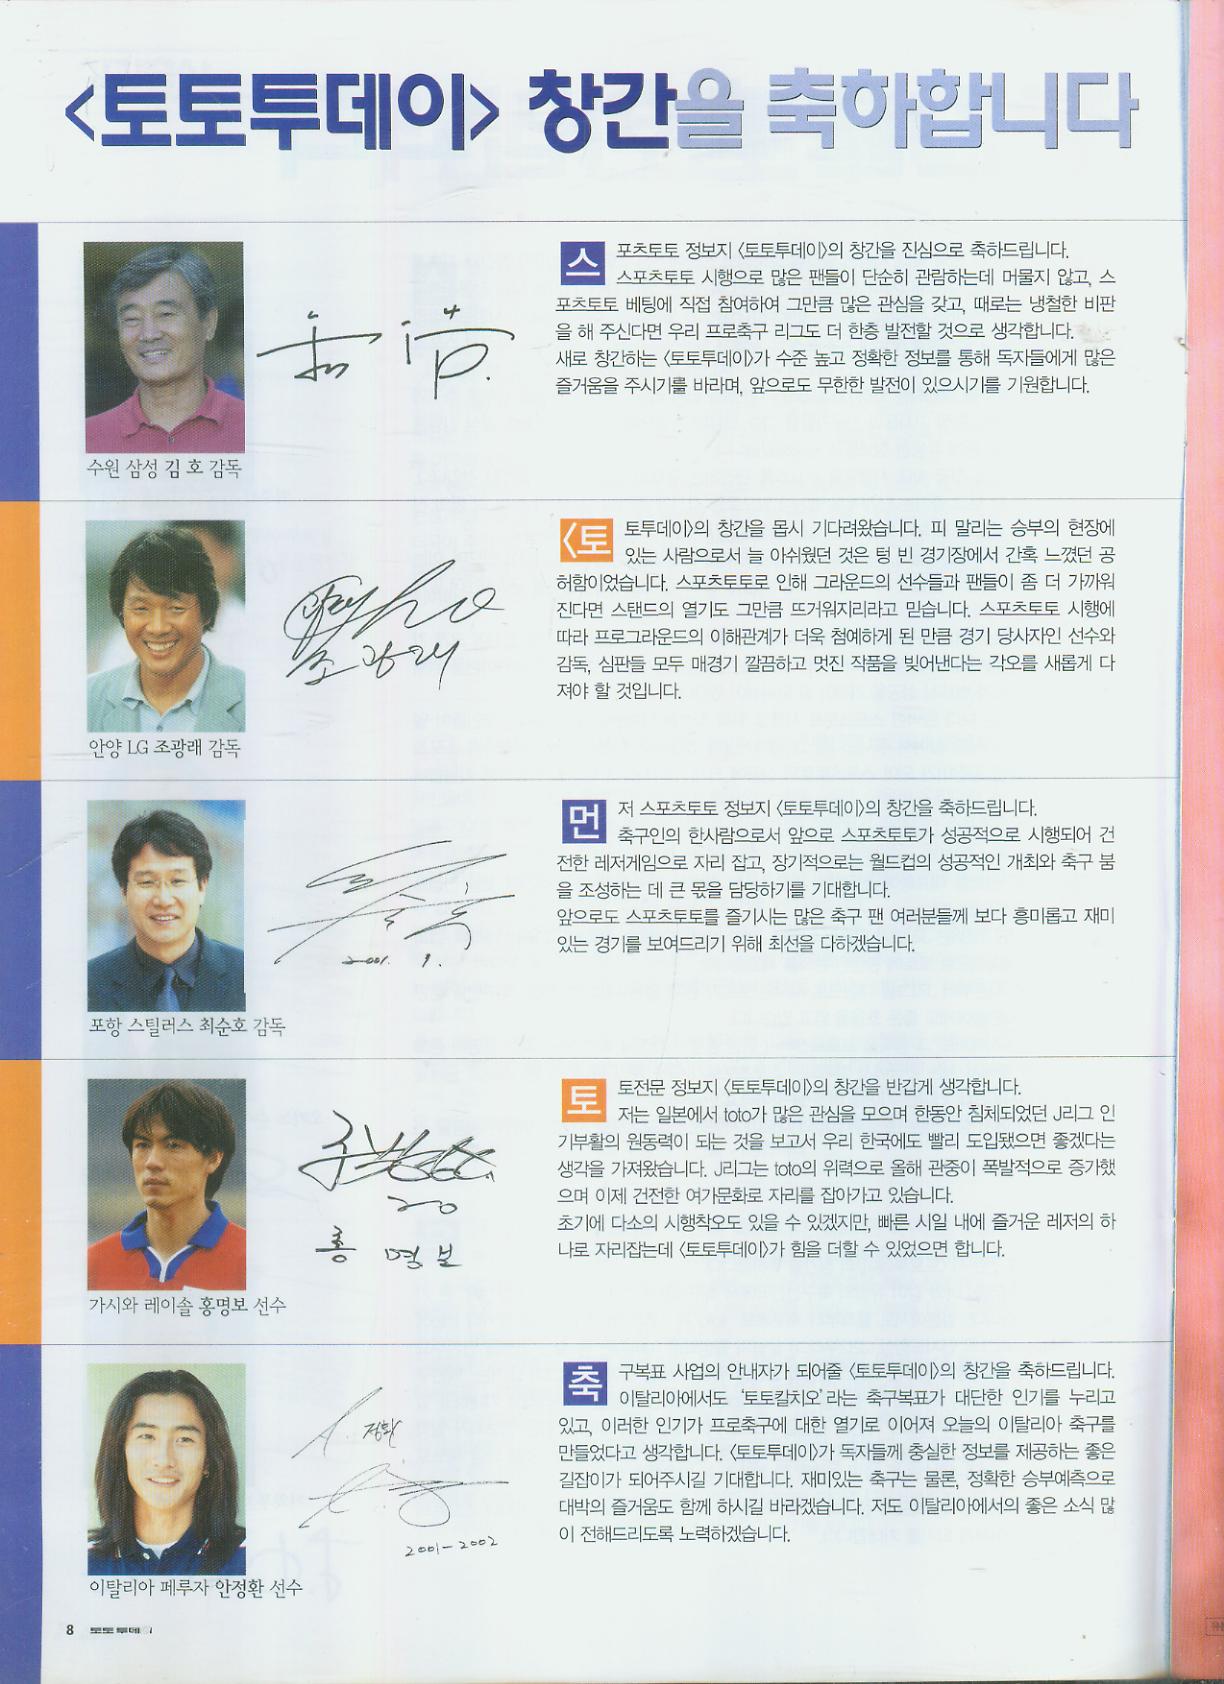 <토토투데이> 창간을 축하합니다
스포츠토토 정보지 <토토투데이>의 창간을 진심으로 축하드립니다.
스포츠토토 시행으로 많은 팬들이 단순히 관람하는데 머물지 않고, 스
포츠토토 베팅에 직접 참여하여 그만큼 많은 관심을 갖고, 때로는 냉철한 비판
을 해 주신다면 우리 프로축구 리그도 더 한층 발전할 것으로 생각합니다.
새로 창간하는 <토토투데이>가 수준 높고 정확한 정보를 통해 독자들에게 많은
즐거움을 주시기를 바라며, 앞으로도 무한한 발전이 있으시기를 기원합니다.
수원 삼성 김 호 감독
<토토투데이>의 창간을 몹시 기다려왔습니다. 피 말리는 승부의 현장에
있는 사람으로서 늘 아쉬웠던 것은 텅 빈 경기장에서 간혹 느꼈던 공
허함이었습니다. 스포츠토토로 인해 그라운드의 선수들과 팬들이 좀 더 가까워
진다면 스탠드의 열기도 그만큼 뜨거워지리라고 믿습니다. 스포츠토토 시행에
따라 프로그라운드의 이해관계가 더욱 첨예하게 된 만큼 경기 당사자인 선수와
감독, 심판들 모두 매경기 깔끔하고 멋진 작품을 빚어낸다는 각오를 새롭게 다
져야 할 것입니다.
조광래
안양 LG 조광래 감독
먼저 스포츠토토 정보지 <토토투데이>의 창간을 축하드립니다.
축구인의 한사람으로서 앞으로 스포츠토토가 성공적으로 시행되어 건
전한 레저게임으로 자리 잡고, 장기적으로는 월드컵의 성공적인 개최와 축구 붐
을 조성하는 데 큰 몫을 담당하기를 기대합니다.
앞으로도 스포츠토토를 즐기시는 많은 축구 팬 여러분들께 보다 흥미롭고 재미
있는 경기를 보여드리기 위해 최선을 다하겠습니다.
2001. 9.
포항 스틸러스 최순호 감독
토토전문 정보지 <토토투데이>의 창간을 반갑게 생각합니다.
저는 일본에서 toto가 많은 관심을 모으며 한동안 침체되었던 J리그 인
기부활의 원동력이 되는 것을 보고서 우리 한국에도 빨리 도입됐으면 좋겠다는
생각을 가져왔습니다. J리그는 toto의 위력으로 올해 관중이 폭발적으로 증가했
으며 이제 건전한 여가문화로 자리를 잡아가고 있습니다.
초기에 다소의 시행착오도 있을 수 있겠지만, 빠른 시일 내에 즐거운 레저의 하
나로 자리잡는데 <토토투데이>가 힘을 더할 수 있었으면 합니다.
20
홍명보
가시와 레이솔 홍명보 선수
축구복표 사업의 안내자가 되어줄 <토토투데이>의 창간을 축하드립니다.
이탈리아에서도 '토토칼치오'라는 축구복표가 대단한 인기를 누리고
있고, 이러한 인기가 프로축구에 대한 열기로 이어져 오늘의 이탈리아 축구를
만들었다고 생각합니다. <토토투데이>가 독자들께 충실한 정보를 제공하는 좋은
길잡이가 되어주시길 기대합니다. 재미있는 축구는 물론, 정확한 승부예측으로
대박의 즐거움도 함께 하시길 바라겠습니다. 저도 이탈리아에서의 좋은 소식 많
이 전해드리도록 노력하겠습니다.
정환
2001-2002
이탈리아 페루자 안정환 선수
8 토토투데이